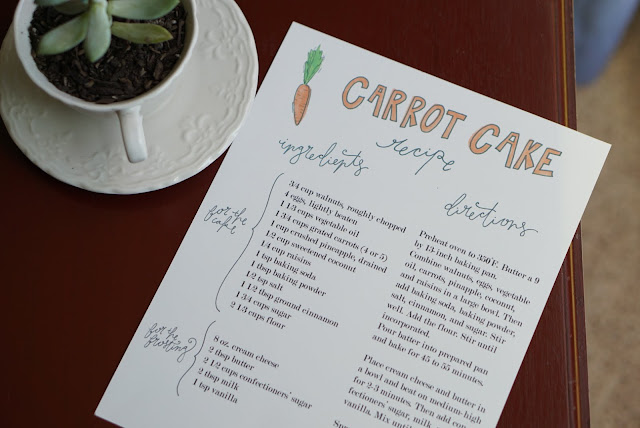 CARROT CAKE
recipe
ingredients
for the
cake
3/4 cup walnuts, roughly chopped
4 eggs, lightly beaten
1 1/3 cups vegetable oil
1 3/4 cups grated carrots (4 or 5)
1 cup crushed pineapple, drained
1/2 cup sweetened coconut
1/4 cup raisins
1 tsp baking soda
1 tbsp baking powder
1/2 tsp salt
1 1/2 tbsp ground cinnamon
1 3/4 cups sugar
2 1/3 cups flour
for the
frosting
8 oz. cream cheese
2 tbsp butter
2 1/2 cups confectioners' sugar
2 tbsp milk
1 tsp vanilla
directions
Preheat oven to 350°F. Butter a 9
by 13-inch baking pan.
Combine walnuts, eggs, vegetable
oil, carrots, pineapple, coconut,
and raisins in a large bowl. Then
add baking soda, baking powder,
salt, cinnamon, and sugar. Stir
well. Add the flour. Stir until
incorporated.
Pour batter into prepared pan
and bake for 45 to 55 minutes.
Place cream cheese and butter in
a bowl and beat on medium-high
for 2-3 minutes. Then add con-
fectioners' sugar, milk, and
vanilla. Mix until